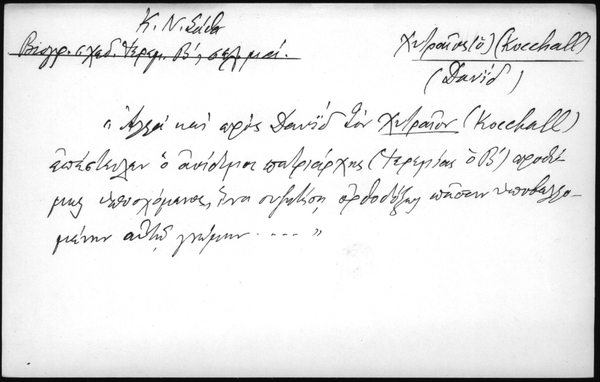 Κ. Ν. Σάθα
Βιογρ. σχεδ. Ἱερεμ. Β', σελ. μαί.
Χυτραῖος (ὁ) (Kocchall)
(David)
"Ἀλλὰ καὶ πρὸς Δαυῒδ τὸν Χυτραῖον (Kocchall)
ἀπέστειλεν ὁ ἀοίδιμος πατριάρχης (Ἱερεμίας ὁ Β') προθύ-
μως ὑποσχόμενος, ἵνα συζητήσῃ ὀρθοδόξως πᾶσαν ὑποβαλλο-
μένην αὐτῷ γνώμην . ---- "